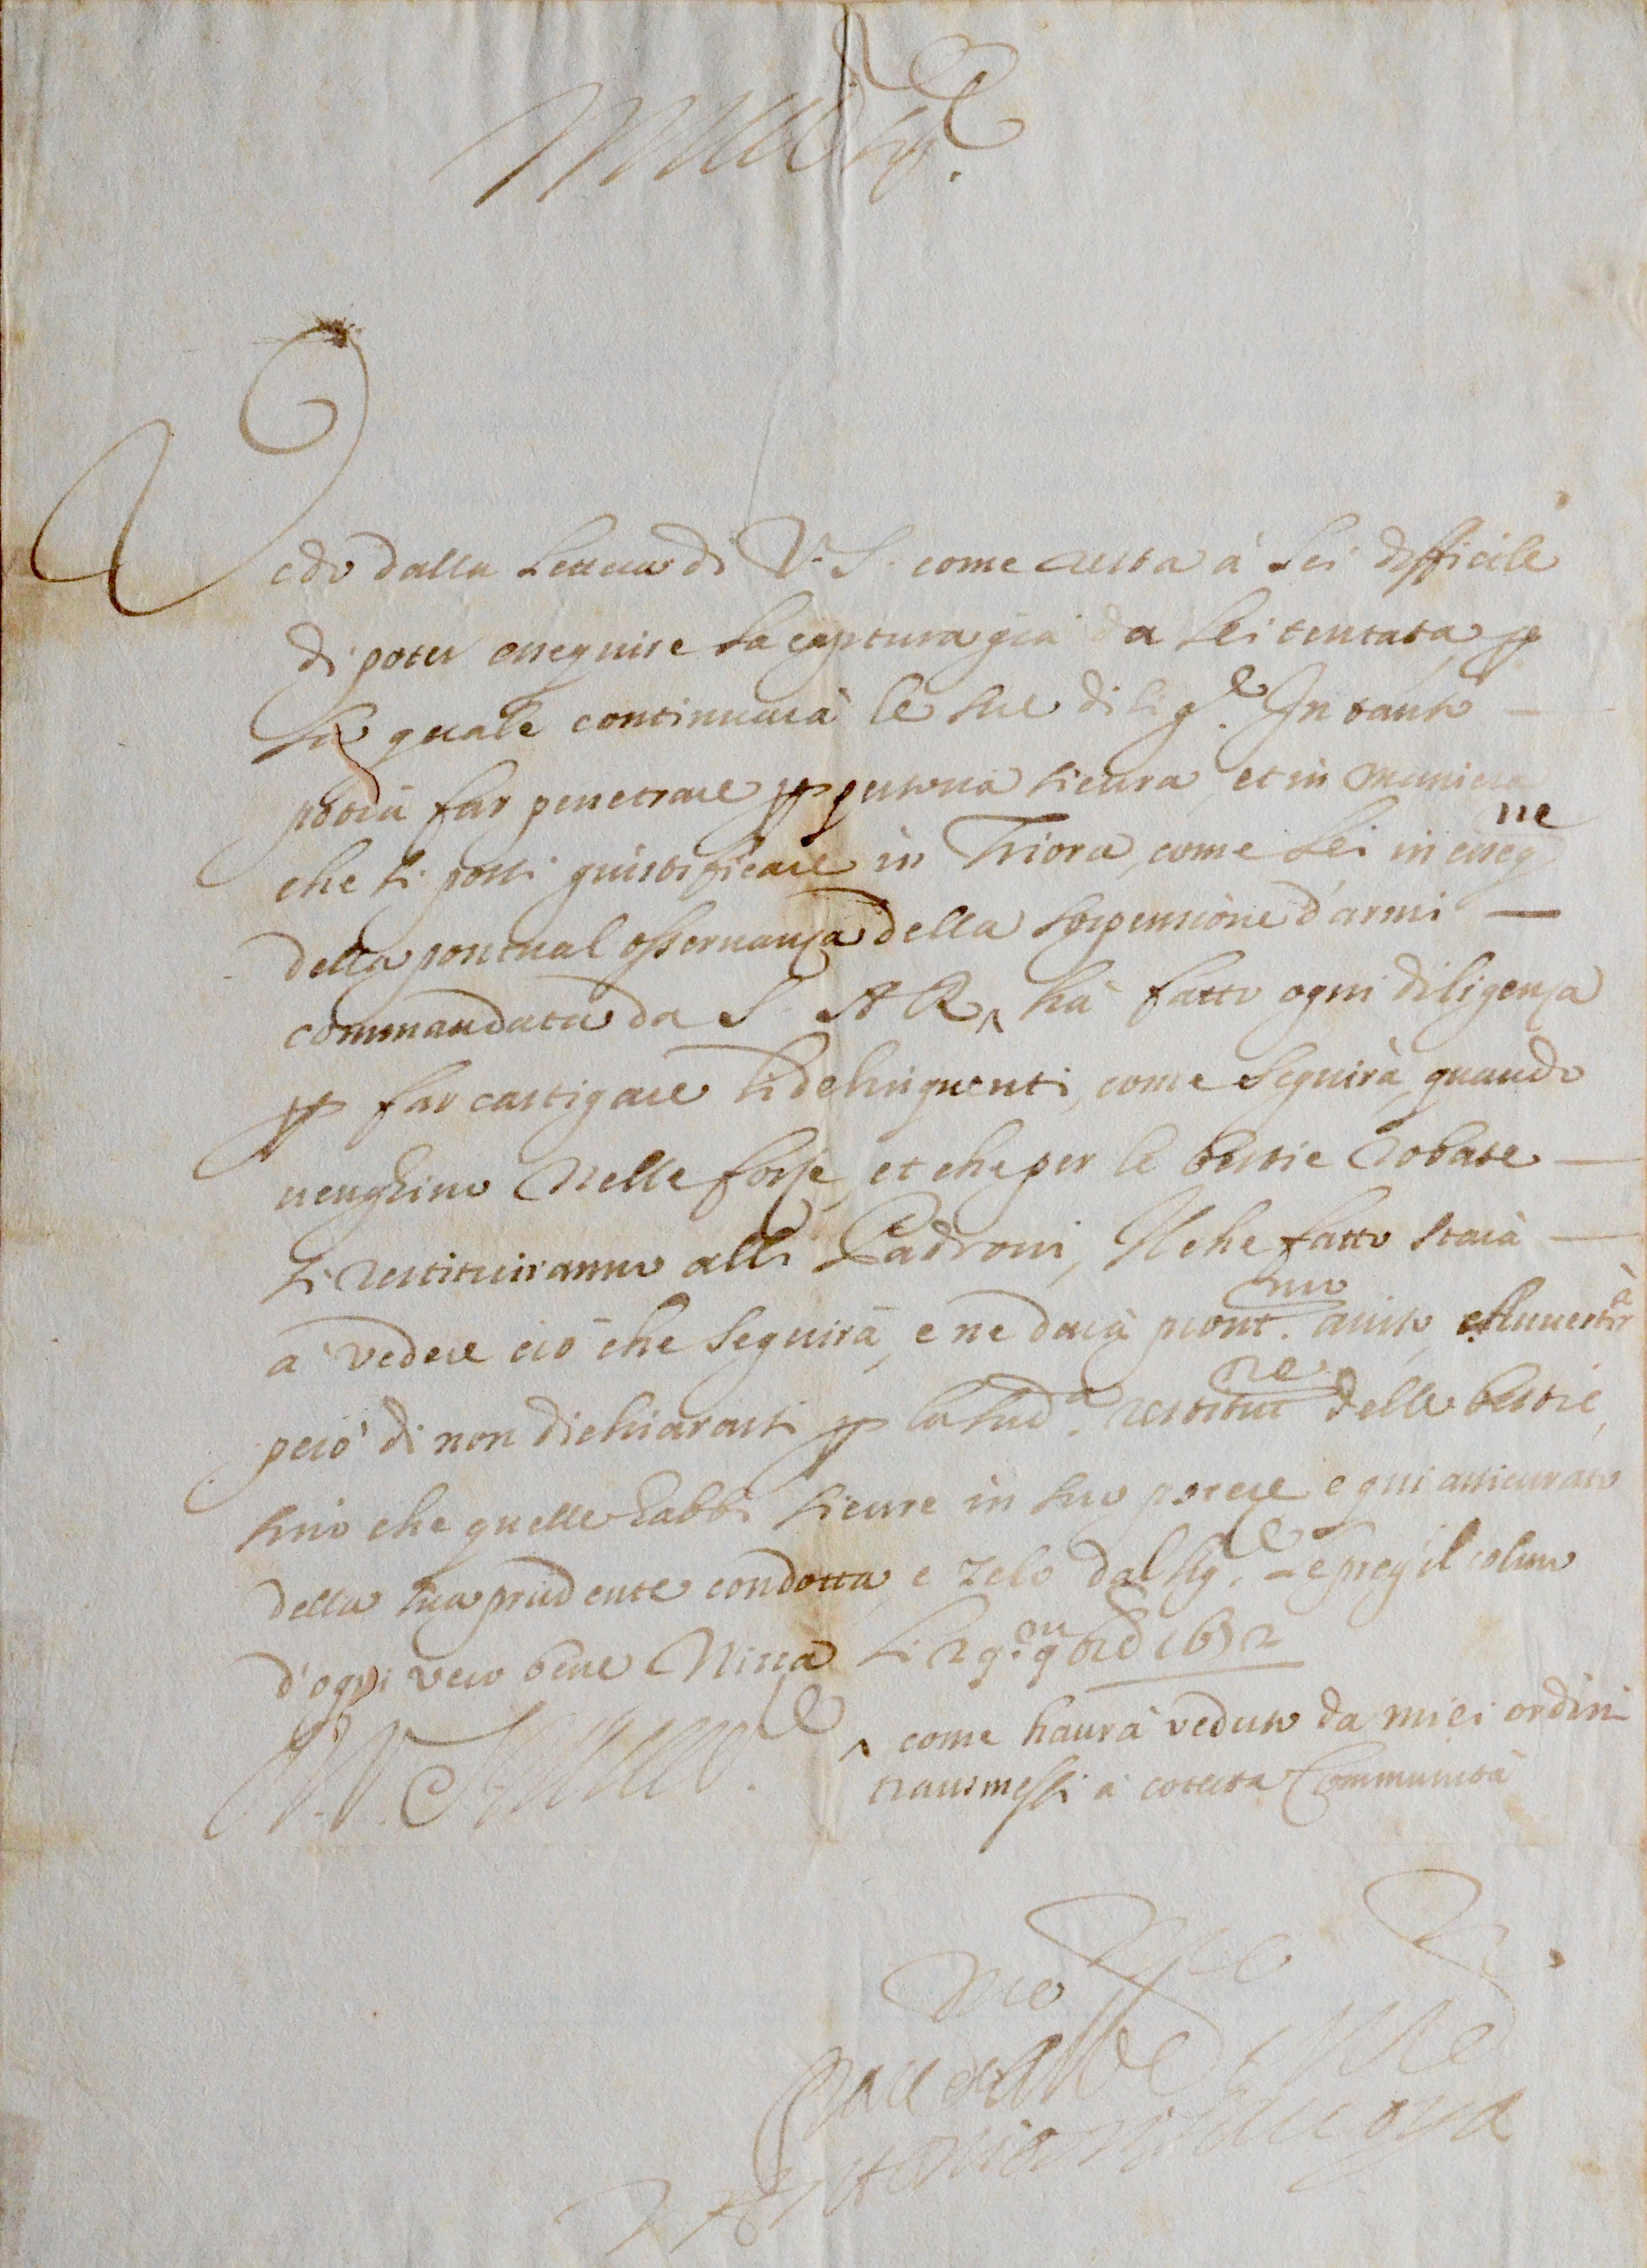 Vedo dalla lettera di V. S. come resta à lei difficile
di poter esseguire la captura già da lei tentata, p
la quale continuarà le sue dilig.e In tanto —
potrà far penetrare p persona sicura, et in maniera
che si possi giustificare in Triora, come lei in esseg.ne
della pontual osseruanza della sospensione d'armi —
commandata da S. A R ^ hà fatto ogni diligenza
p far castigare li delinquenti, come seguirà, quando
venghino nelle forze, et che per le bestie robate —
si restituiranno alli Padroni, Il che fatto starà —
a vedere ciò che seguirà, e ne darà pront.mo auiso, et auuertirà
però di non dichiararsi p la sud.a restitut.ne delle bestie,
sino che quelle habbi sicure in suo potere e qui assicurato
della sua prudente condotta, e zelo dal Sig.e Le prego il colmo
d'ogni vero bene Nizza li 29. 9bre 1672
^ come haurà veduto da miei ordini
transmessi à cotesta Communità
D. Antonio di Sauoya